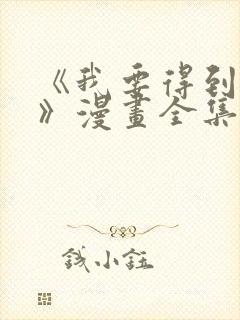 《我要得到
》漫畫全集
钱小钰